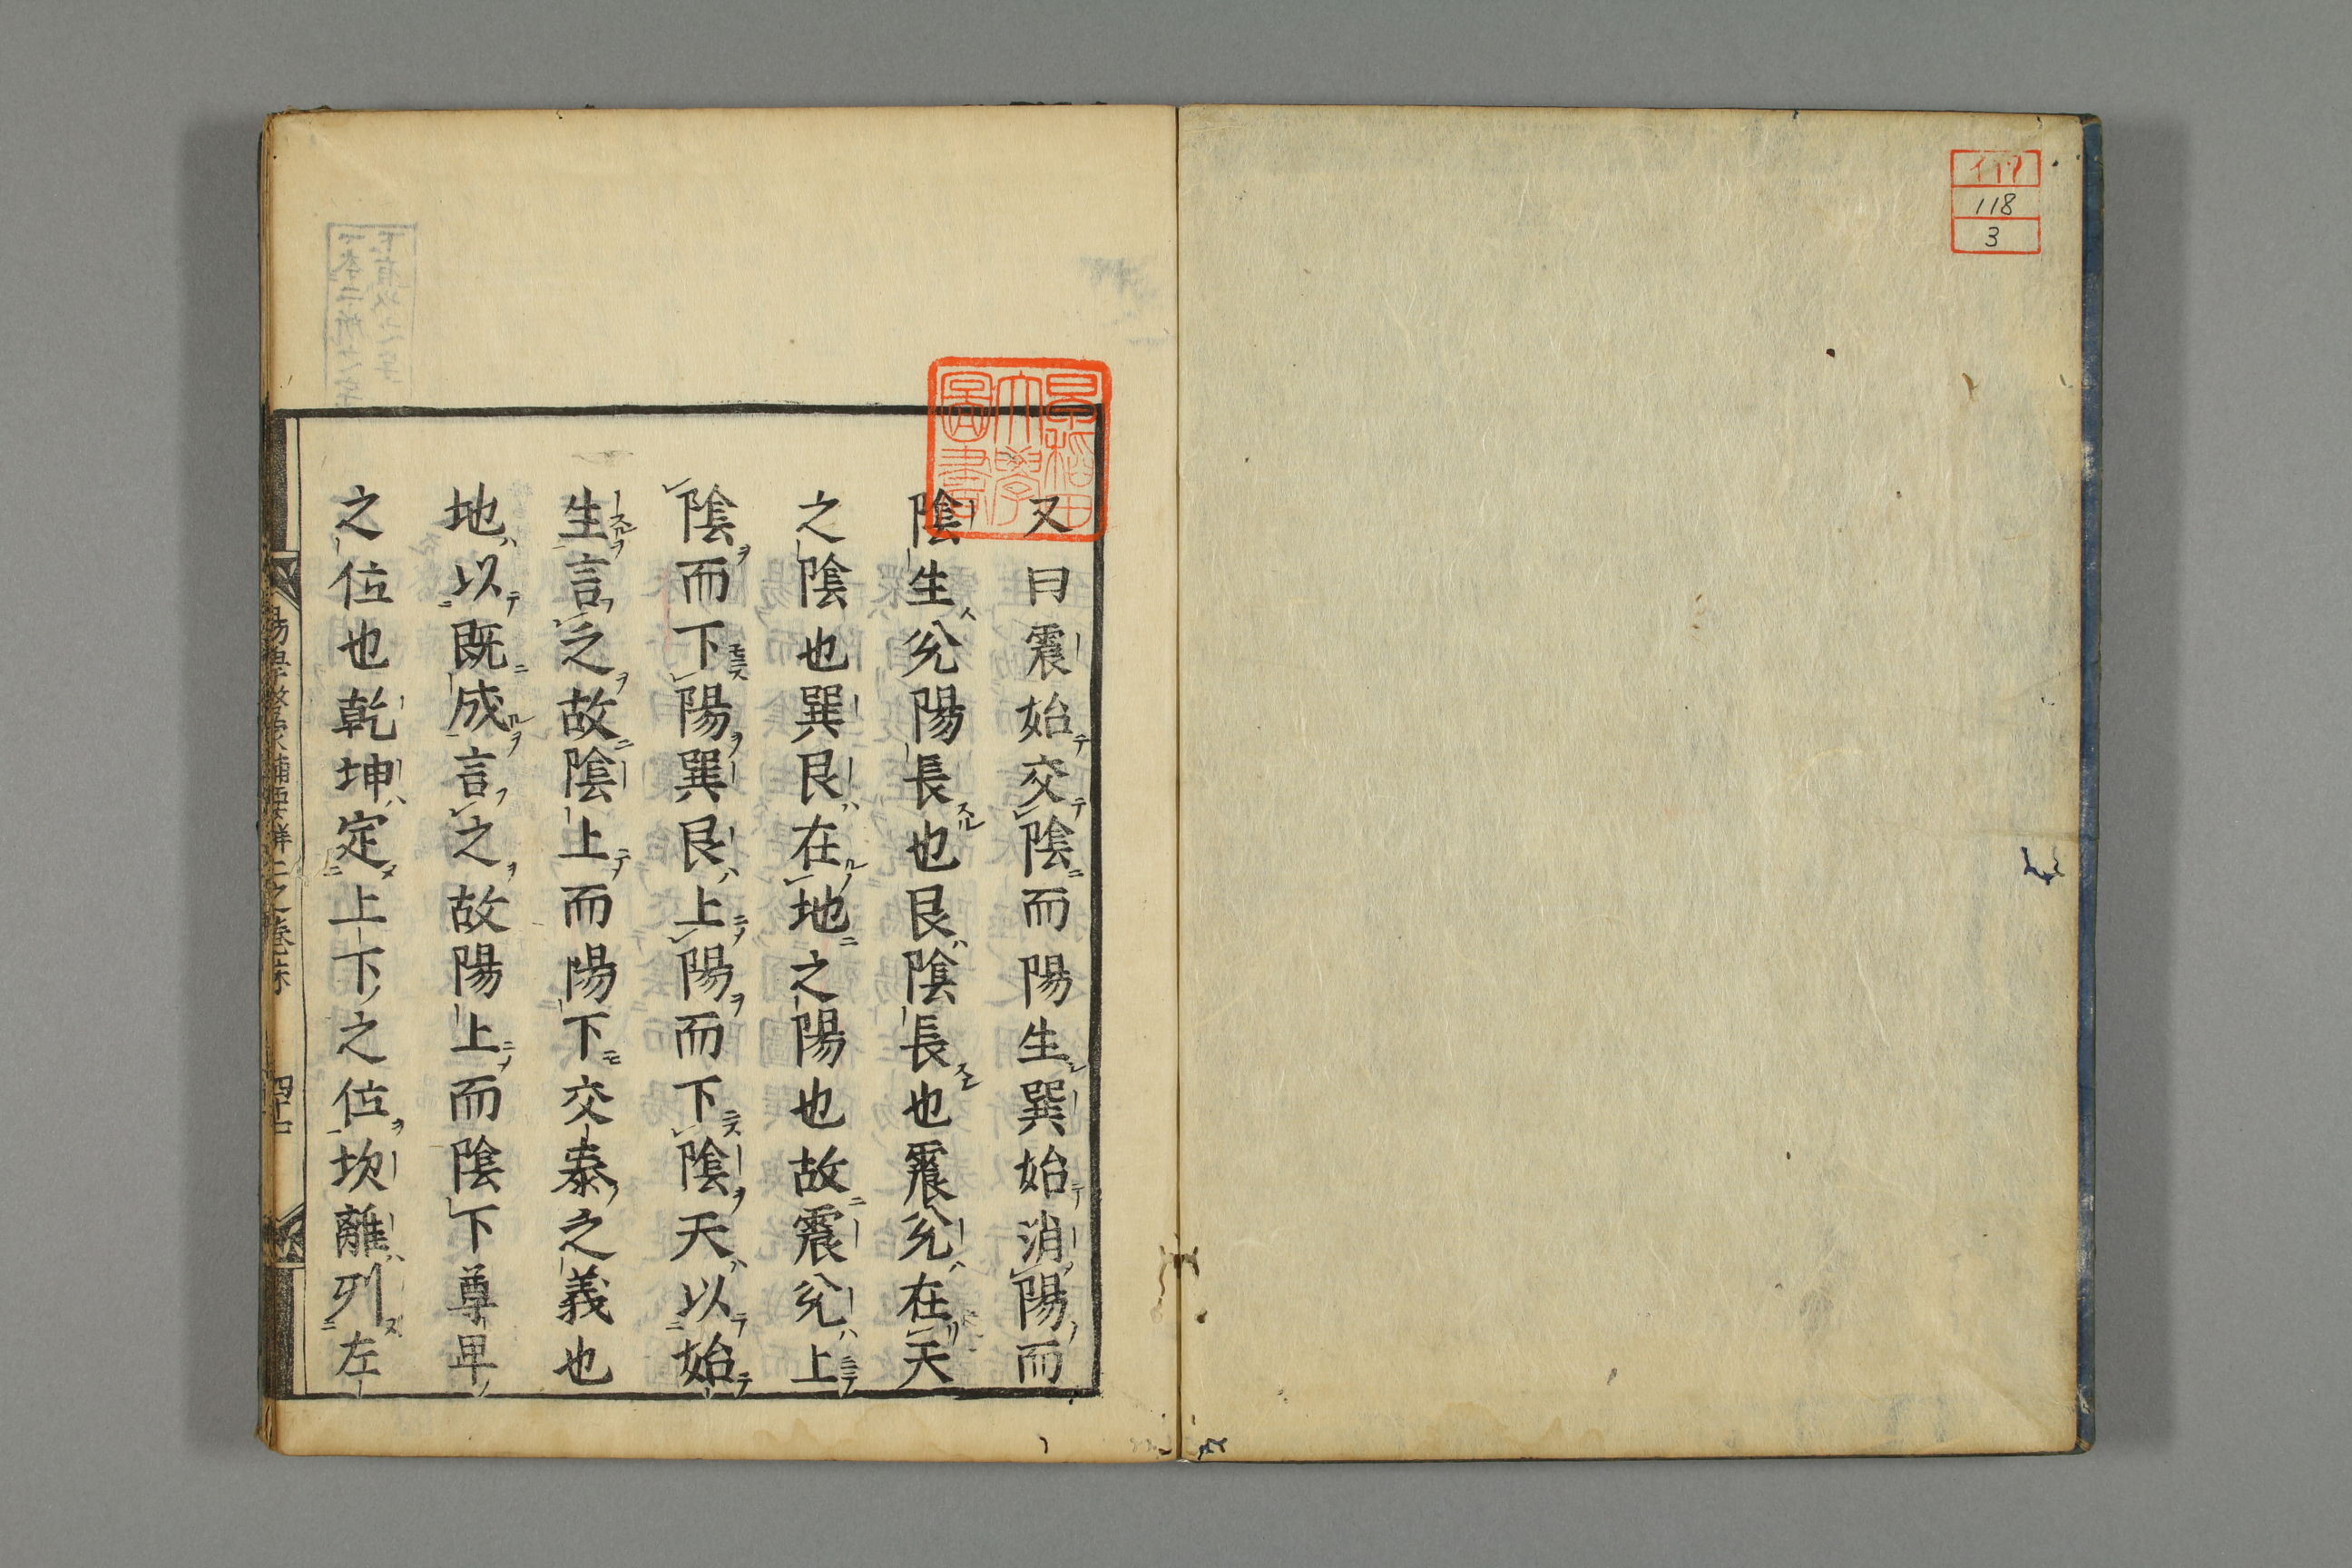 118
3
早稲田
大學
圖書
又曰震始交陰而陽生巽始消陽而
陰生兊陽長也艮陰長也震兊在天
之陰也巽艮在地之陽也故震兊上
陰而下陽巽艮上陽而下陰天以始
生言之故陰上而陽下交泰之義也
地以既成言之故陽上而陰下尊卑
之位也乾坤定上下之位坎離列左